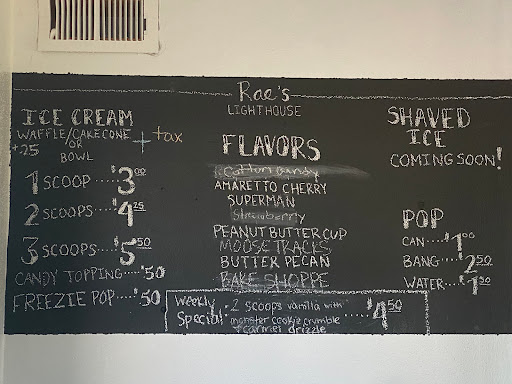 Rae's
LIGHTHOUSE
ICE CREAM
WAFFLE/CAKE CONE
OR
BOWL
+25
+ tax
1 SCOOP ..... $3.00
2 SCOOPS ..... $4.25
3 SCOOPS .... $5.50
CANDY TOPPING ..... $.50
FREEZIE POP ..... $.50
FLAVORS
Cotton Candy
AMARETTO CHERRY
SUPERMAN
Strawberry
PEANUT BUTTER CUP
MOOSE TRACKS
BUTTER PECAN
BAKE SHOPPE
Weekly Special: 2 scoops vanilla with
monster cookie crumble
+ carmel drizzle ..... $4.50
SHAVED
ICE
COMING SOON!
POP
CAN .... $1.00
BANG .... $2.50
WATER .... $1.50